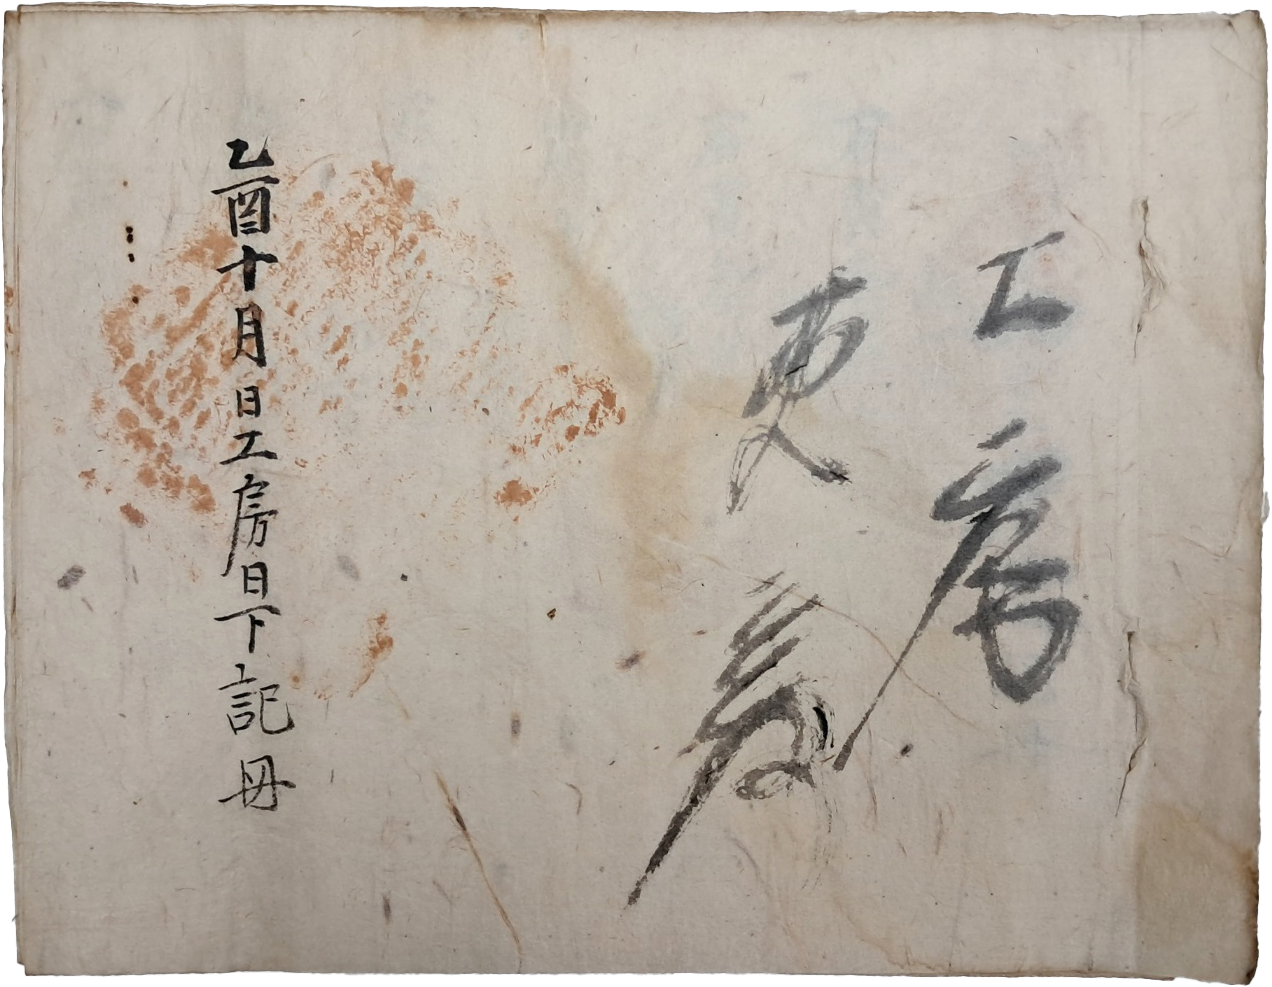 工房
吏房
乙酉十月日工房日下記冊